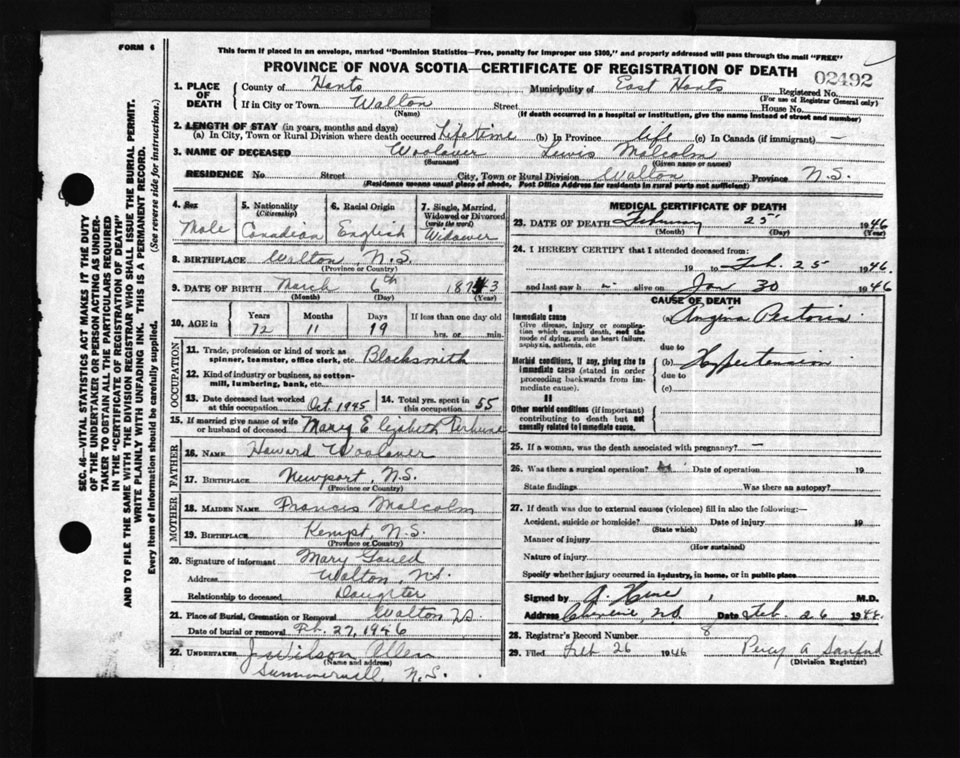 FORM 6
This form if placed in an envelope, marked "Dominion Statistics—Free, penalty for improper use $300," and properly addressed will pass through the mail "FREE"
PROVINCE OF NOVA SCOTIA—CERTIFICATE OF REGISTRATION OF DEATH
02492
1. PLACE OF DEATH County of Hants Municipality of East Hants Registered No.
(For use of Registrar General only)
If in City or Town Walton Street House No.
(Name) (If death occurred in a hospital or institution, give the name instead of street and number)
2. LENGTH OF STAY (in years, months and days)
(a) In City, Town or Rural Division where death occurred Lifetime (b) In Province life (c) In Canada (if immigrant) —
3. NAME OF DECEASED Woolaver Lewis Malcolm
(Surname) (Given name or names)
RESIDENCE No. Street City, Town or Rural Division Walton Province N.S.
(Residence means usual place of abode, Post Office Address for residents in rural parts not sufficient)
4. Sex
Male
5. Nationality (Citizenship)
Canadian
6. Racial Origin
English
7. Single, Married, Widowed or Divorced (write the word)
Widower
8. BIRTHPLACE Walton, N.S.
(Province or Country)
9. DATE OF BIRTH March 6th 1873
(Month) (Day) (Year)
10. AGE in Years Months Days If less than one day old
72 11 19 hrs. or min.
OCCUPATION
11. Trade, profession or kind of work as spinner, teamster, office clerk, etc. Blacksmith
12. Kind of industry or business, as cotton-mill, lumbering, bank, etc.
13. Date deceased last worked at this occupation Oct. 1945 14. Total yrs. spent in this occupation 55
15. If married give name of wife or husband of deceased Mary Elizabeth
FATHER
16. NAME Howard Woolaver
17. BIRTHPLACE Newport, N.S.
(Province or Country)
MOTHER
18. MAIDEN NAME Francis Malcolm
19. BIRTHPLACE Kempt, N.S.
(Province or Country)
20. Signature of informant Mary
Address Walton, N.S.
Relationship to deceased Daughter
21. Place of Burial, Cremation or Removal Walton N.S.
Date of burial or removal Feb. 27, 1946
22. UNDERTAKER J. Wilson Allen
(Name and address)
N.S.
MEDICAL CERTIFICATE OF DEATH
23. DATE OF DEATH February 25 1946
(Month) (Day) (Year)
24. I HEREBY CERTIFY that I attended deceased from:
19 to Feb. 25 1946.
and last saw h alive on Jan 30 1946
CAUSE OF DEATH
I
Immediate cause (a) Angina Pectoris
Give disease, injury or complication which caused death, not the mode of dying, such as heart failure, asphyxia, asthenia, etc.
due to
Morbid conditions, if any, giving rise to immediate cause (stated in order proceeding backwards from immediate cause).
(b) Hypertension
due to
(c)
II
Other morbid conditions (if important) contributing to death but not causally related to immediate cause.
25. If a woman, was the death associated with pregnancy? —
26. Was there a surgical operation? Date of operation 19
State findings Was there an autopsy?
27. If death was due to external causes (violence) fill in also the following:—
Accident, suicide or homicide? Date of injury 19
(State which)
Manner of injury
(How sustained)
Nature of injury
Specify whether injury occurred in industry, in home, or in public place
Signed by M.D.
Address Date Feb. 26 1946.
28. Registrar's Record Number 8
29. Filed Feb 26 1946 Percy A Sanford
(Division Registrar)
SEC. 46—VITAL STATISTICS ACT MAKES IT THE DUTY
OF THE UNDERTAKER OR PERSON ACTING AS UNDER-
TAKER TO OBTAIN ALL THE PARTICULARS REQUIRED
IN THE "CERTIFICATE OF REGISTRATION OF DEATH"
AND TO FILE THE SAME WITH THE DIVISION REGISTRAR WHO SHALL ISSUE THE BURIAL PERMIT.
WRITE PLAINLY WITH UNFADING INK. THIS IS A PERMANENT RECORD.
Every item of information should be carefully supplied. (See reverse side for instructions.)